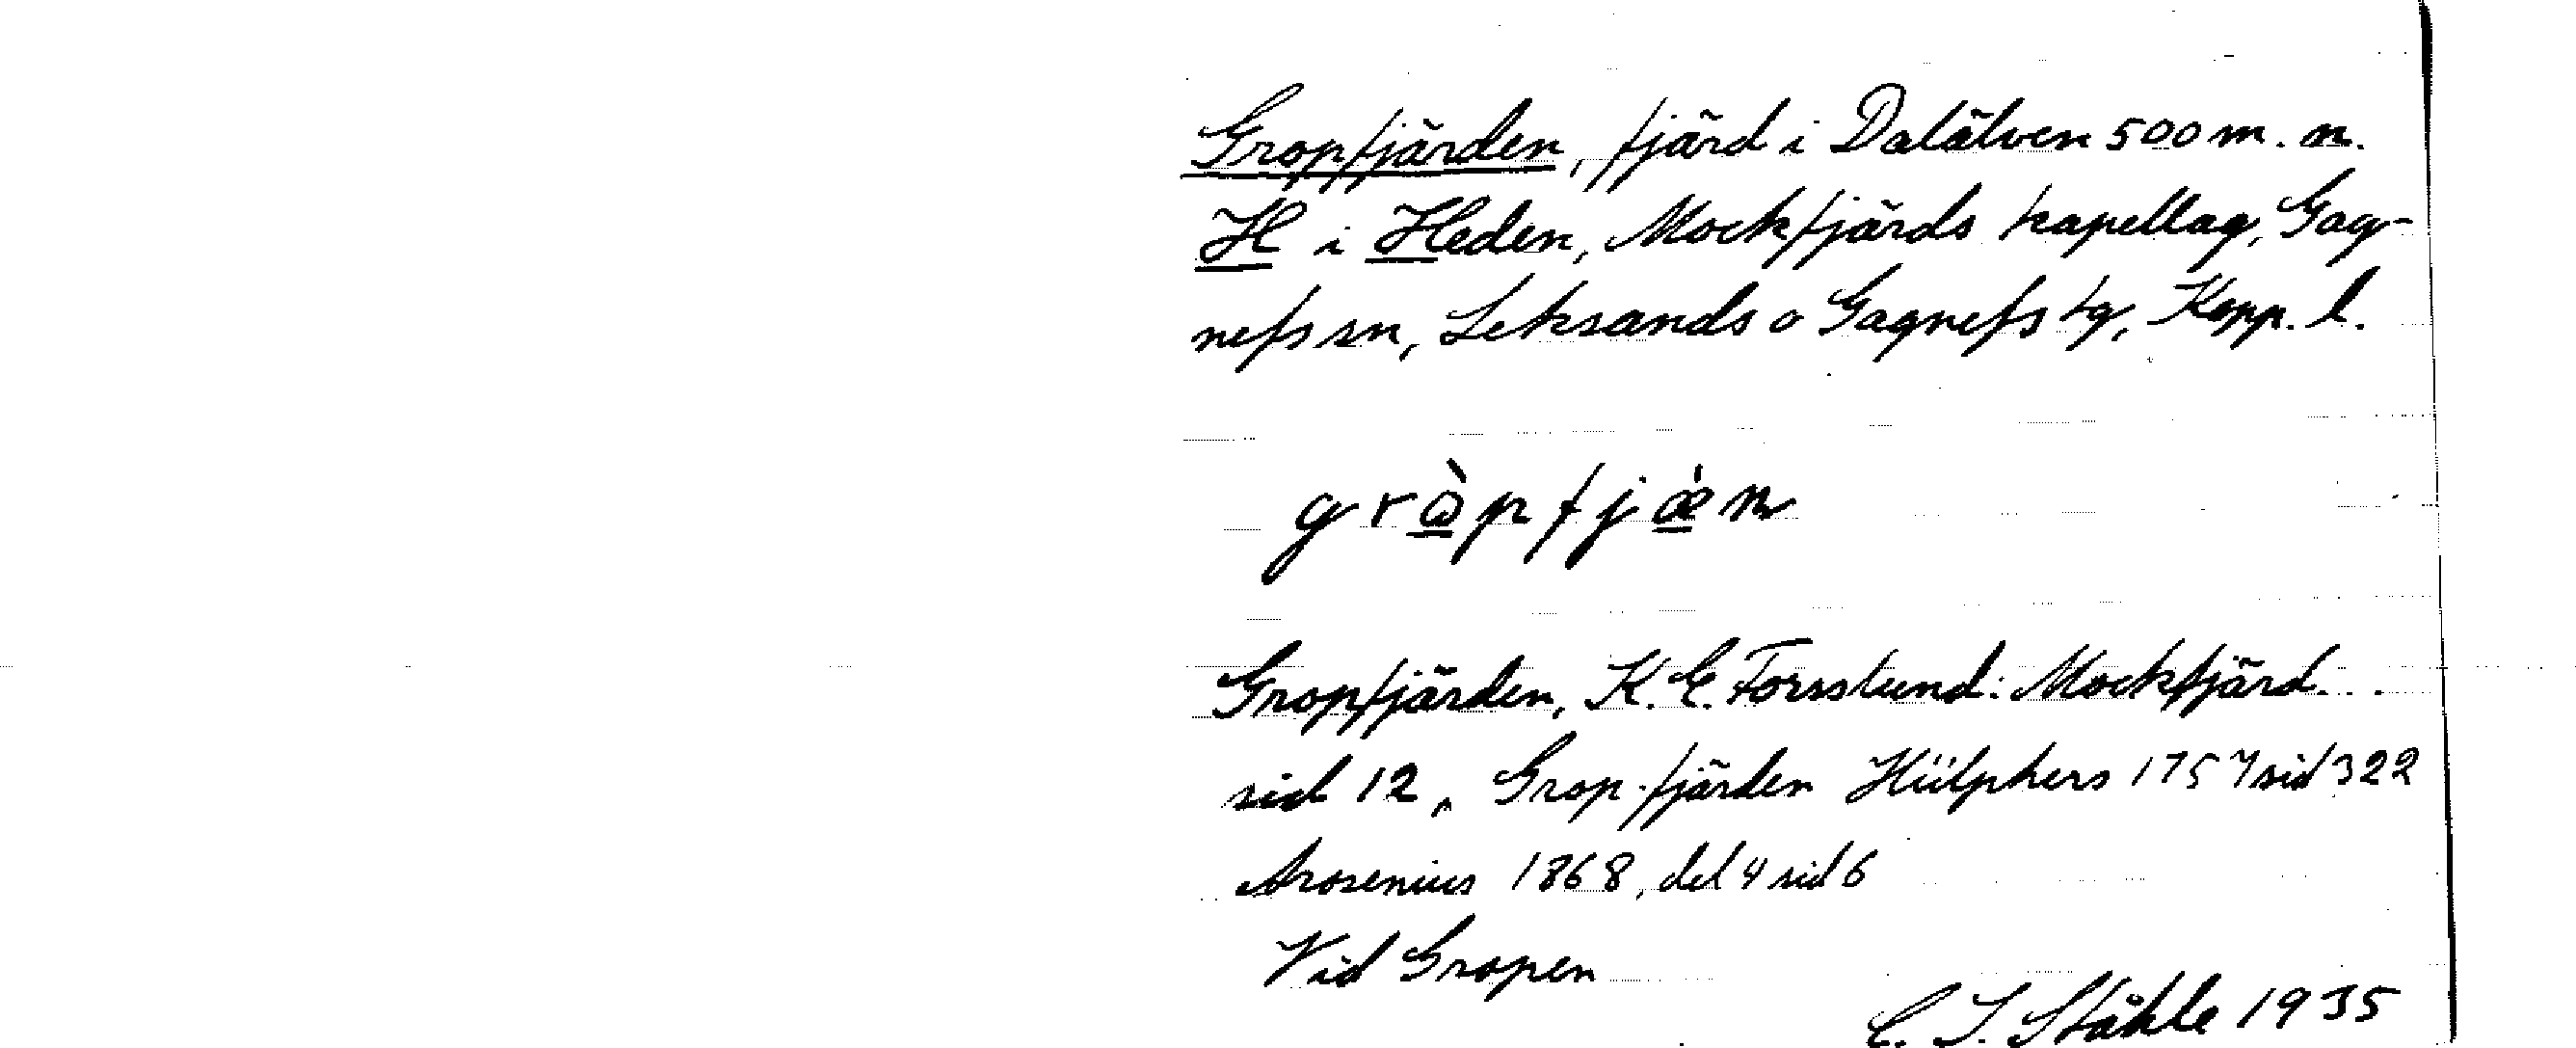 Gropfjärden, fjärd i Dalälven 500 m. n.
H i Heden, Mockfjärds kapellag, Gag-
nefs sn, Leksands o Gagnefs tg, Kopp. l.
grὼpfjǽn
Gropfjärden, K. E. Forsslund: Mockfjärd
sid 12, Grop-fjärden Hülphers 1757 sid 322
Arosenius 1868, del 4 sid 6
Vid Gropen
C. I. Ståhle 1935